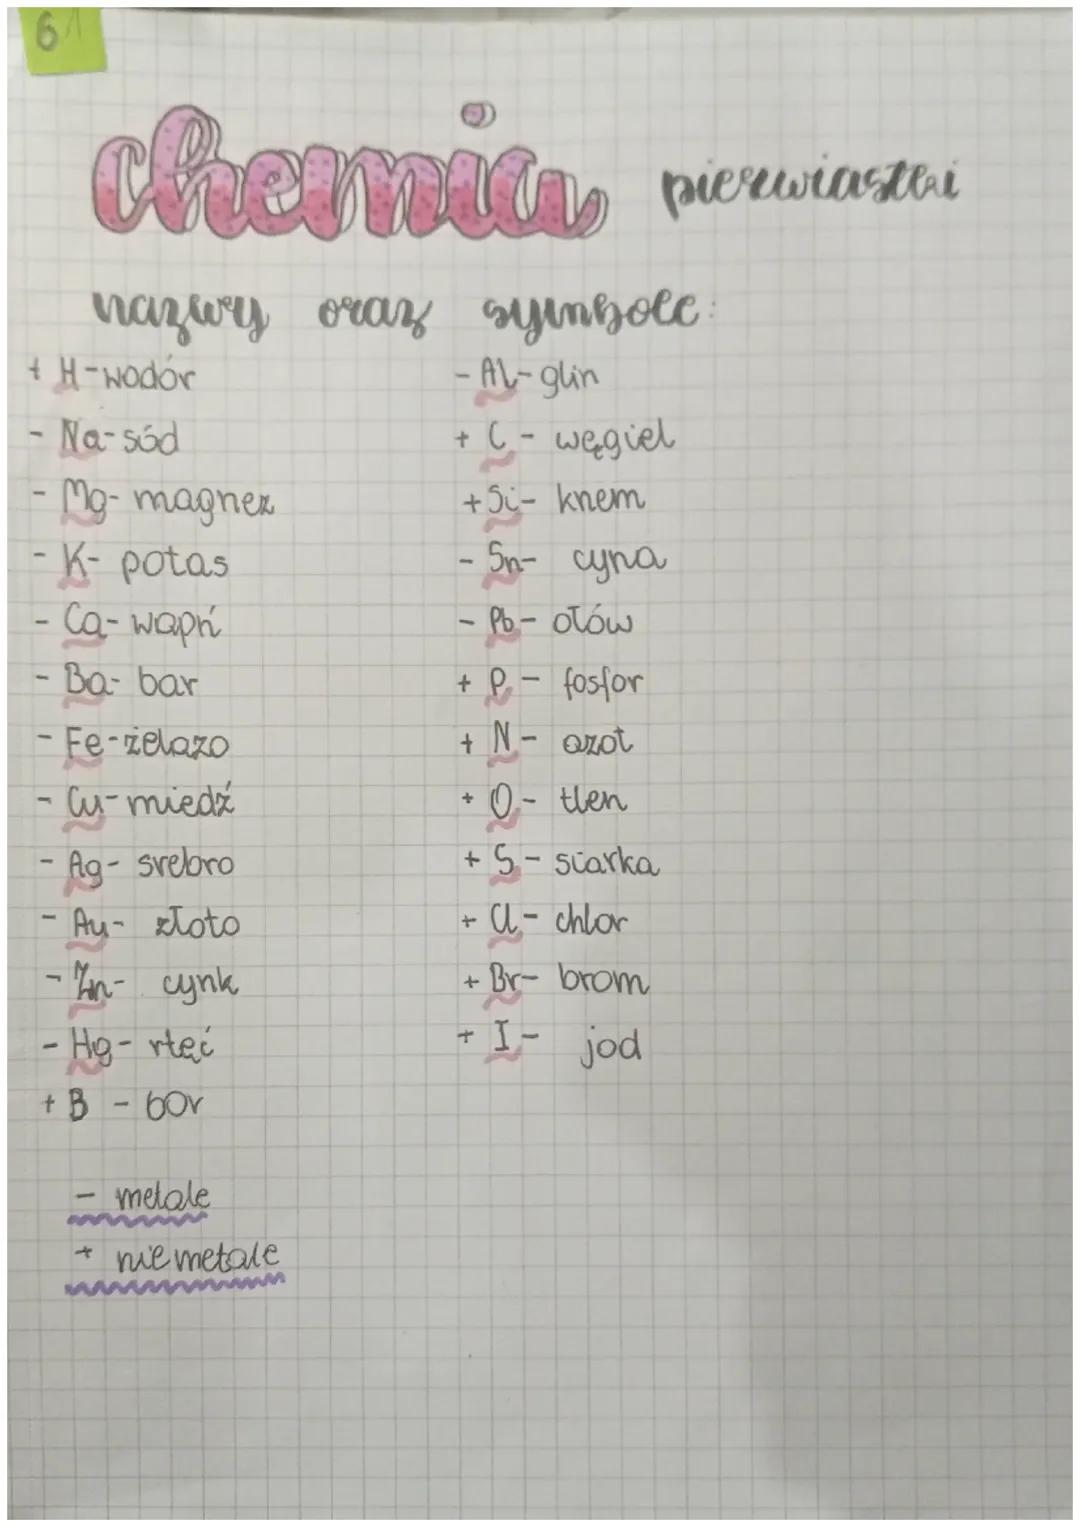 61
chemia pierwiastki
nazwy oraz symbole:
+ H-wodór
- Na-sód
- Mg- magnez
- K- potas
- Ca-wapń
- Ba- bar
- Fe-żelazo
- Cu-miedź
- Ag- srebro
- Au- złoto
- Zn- cynk
- Hg- rtęć
+ B - bor
- Al-glin
+ C - węgiel
+ Si- krzem
- Sn- cyna
- Pb- ołów
+ P - fosfor
+ N - azot
+ O - tlen
+ S - siarka
+ Cl - chlor
+ Br- brom
+ I - jod
- metale
+ niemetale